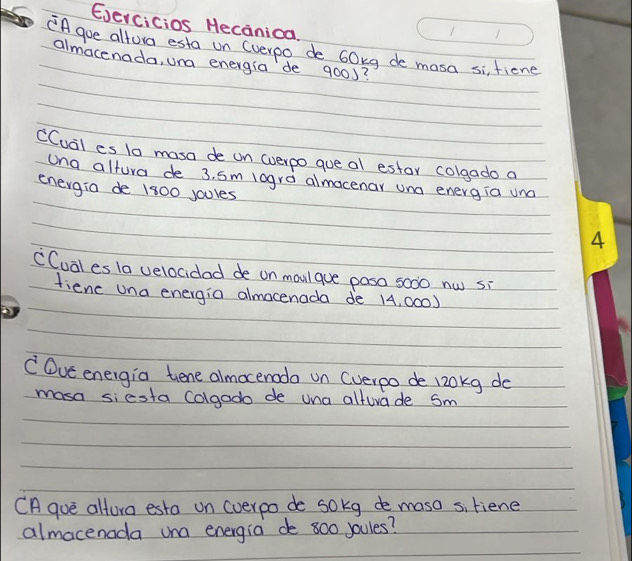 Ejercicios Mecánica.
¿A que altura esta un cuerpo de 60kg de masa si, tiene
almacenada, una energía de 900J?
¿Cuál es la masa de un cuerpo que al estar colgado a
una altura de 3.5m logró almacenar una energía una
energía de 1800 joules
¿Cuál es la velocidad de un movil que pasa 5000 nw si
tiene una energía almacenada de 14,000J
¿Que energía tiene almacenada un cuerpo de 120kg de
masa si esta colgado de una altura de 5m
¿A qué altura esta un cuerpo de 50kg de masa si tiene
almacenada una energía de 800 joules?
4